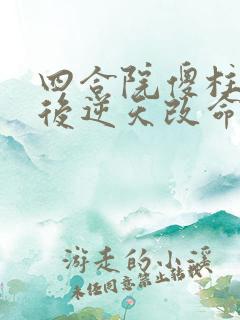 四合院傻柱
後逆天改命
游走的小溪
未经同意禁止转载